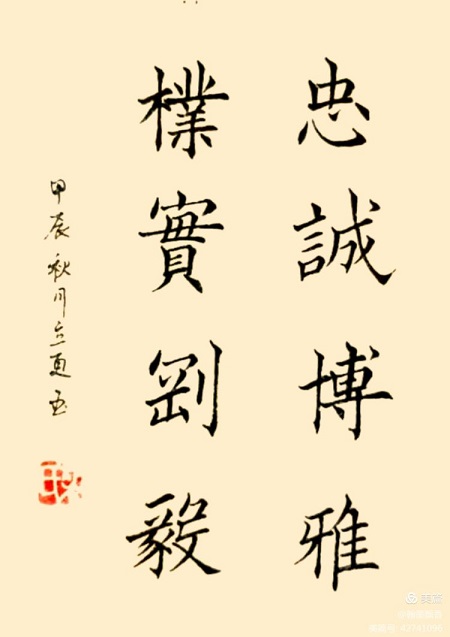 忠誠博雅
樸實剛毅
甲辰秋月立更書
美篇